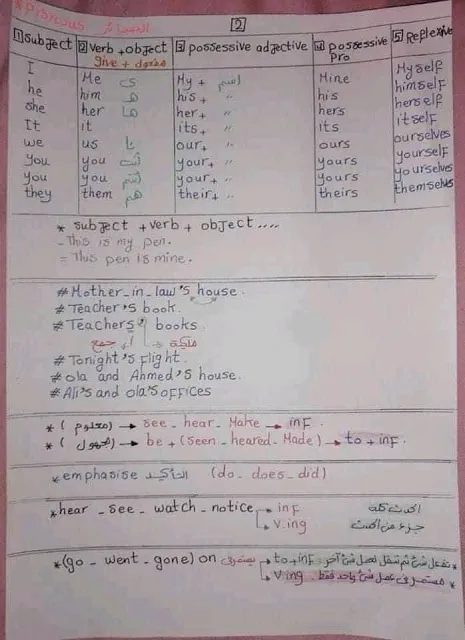 * Pronouns الضمائر [2]
[1] Subject [2] Verb + object [3] possessive adjective [4] possessive Pro [5] Reflexive
give + مفعول
I Me ي My + اسم Mine Myself
he him ه his + " his himself
she her ها her + " hers herself
It it its + " its itself
we us نا our + " ours ourselves
You you your + " yours yourself
You you your + " yours yourselves
they them هم their + " theirs themselves
* subject + verb + object ....
- This is my pen.
= This pen is mine.
# Mother_in_law's house.
# Teacher's book.
# Teachers' books.
جمع ملكية
# Tonight's flight.
# Ola and Ahmed's house.
# Ali's and Ola's offices
* (معلوم) → see _ hear _ Make → inf
* (مجهول) → be + (seen _ heared _ Made) → to + inf.
* emphasise التأكيد (do _ does _ did)
* hear _ see _ watch _ notice → inf الحدث كله
→ v.ing جزء من الحدث
* (go _ went _ gone) on يستمر في → to + inf
→ v.ing مستمر في عمل شئ واحد فقط *